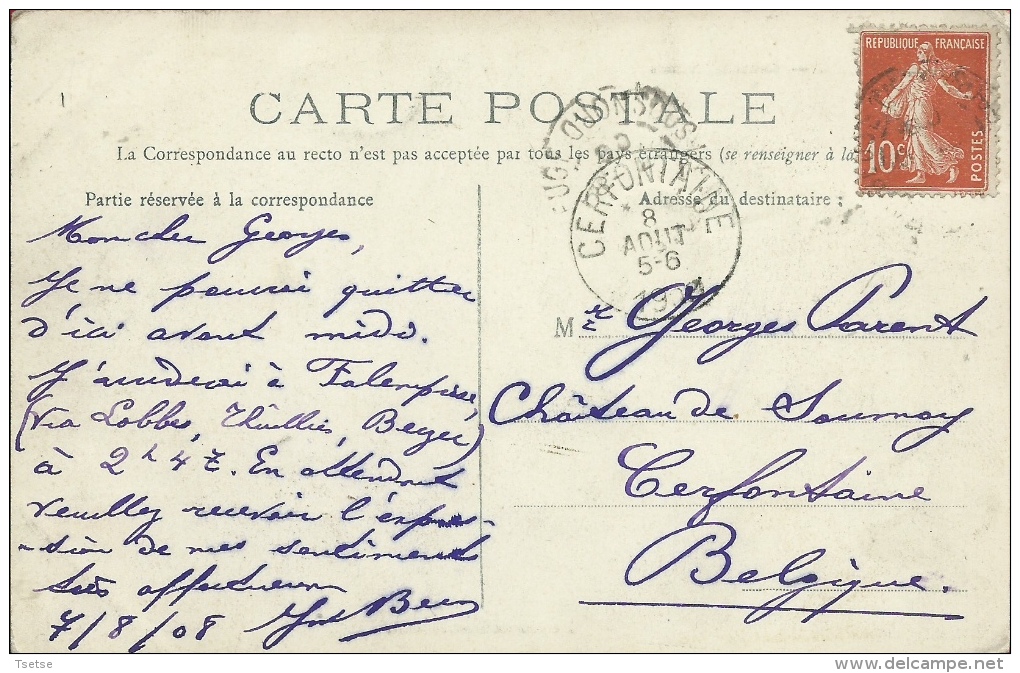 RÉPUBLIQUE FRANÇAISE
10c
POSTES
CARTE POSTALE
La Correspondance au recto n'est pas acceptée par tous les pays étrangers (se renseigner à la
Partie réservée à la correspondance
Adresse du destinataire :
CERFONTAINE
8
AOUT
5-6
Mon cher Georges,
Je ne pourrai quitter
d'ici avant midi.
J'arriverai à Falempise,
(via Lobbes, Thuillies, Berzée)
à 2h 47. En attendant
veuillez recevoir l'expres-
-sion de mes sentiments
très affectueux
7/8/08
Mr Georges Parent
Château de Soumoy
Cerfontaine
Belgique.
Tsetse
delcampe.net